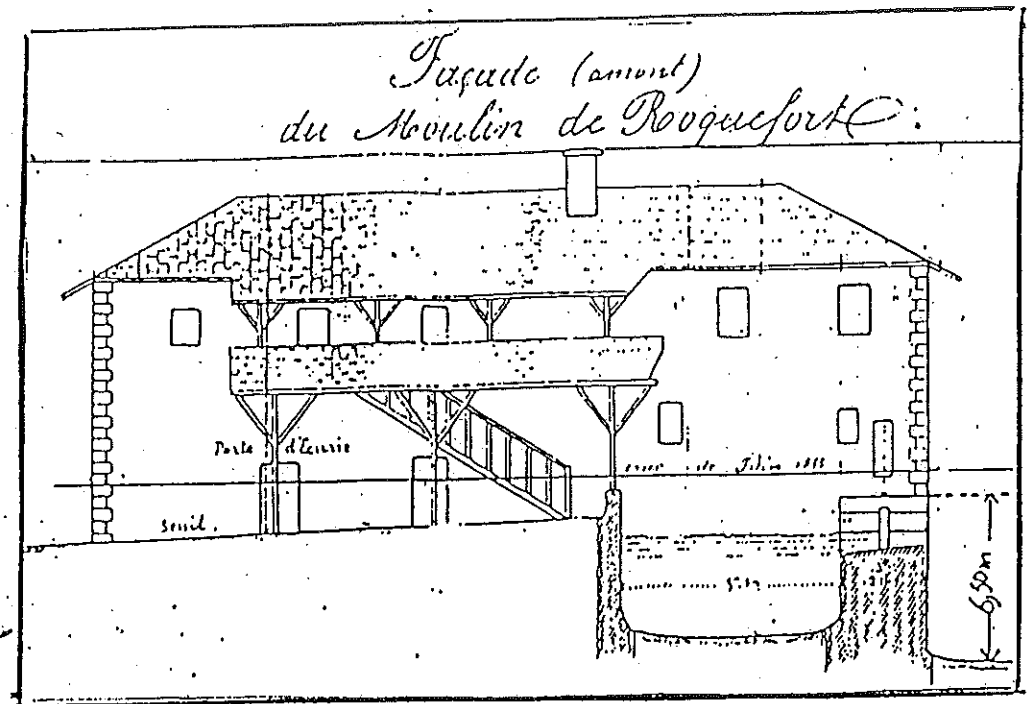 Façade (amont)
du Moulin de Roquefort :
Porte d'Ecurie
crue de 1855
Seuil.
6,50m